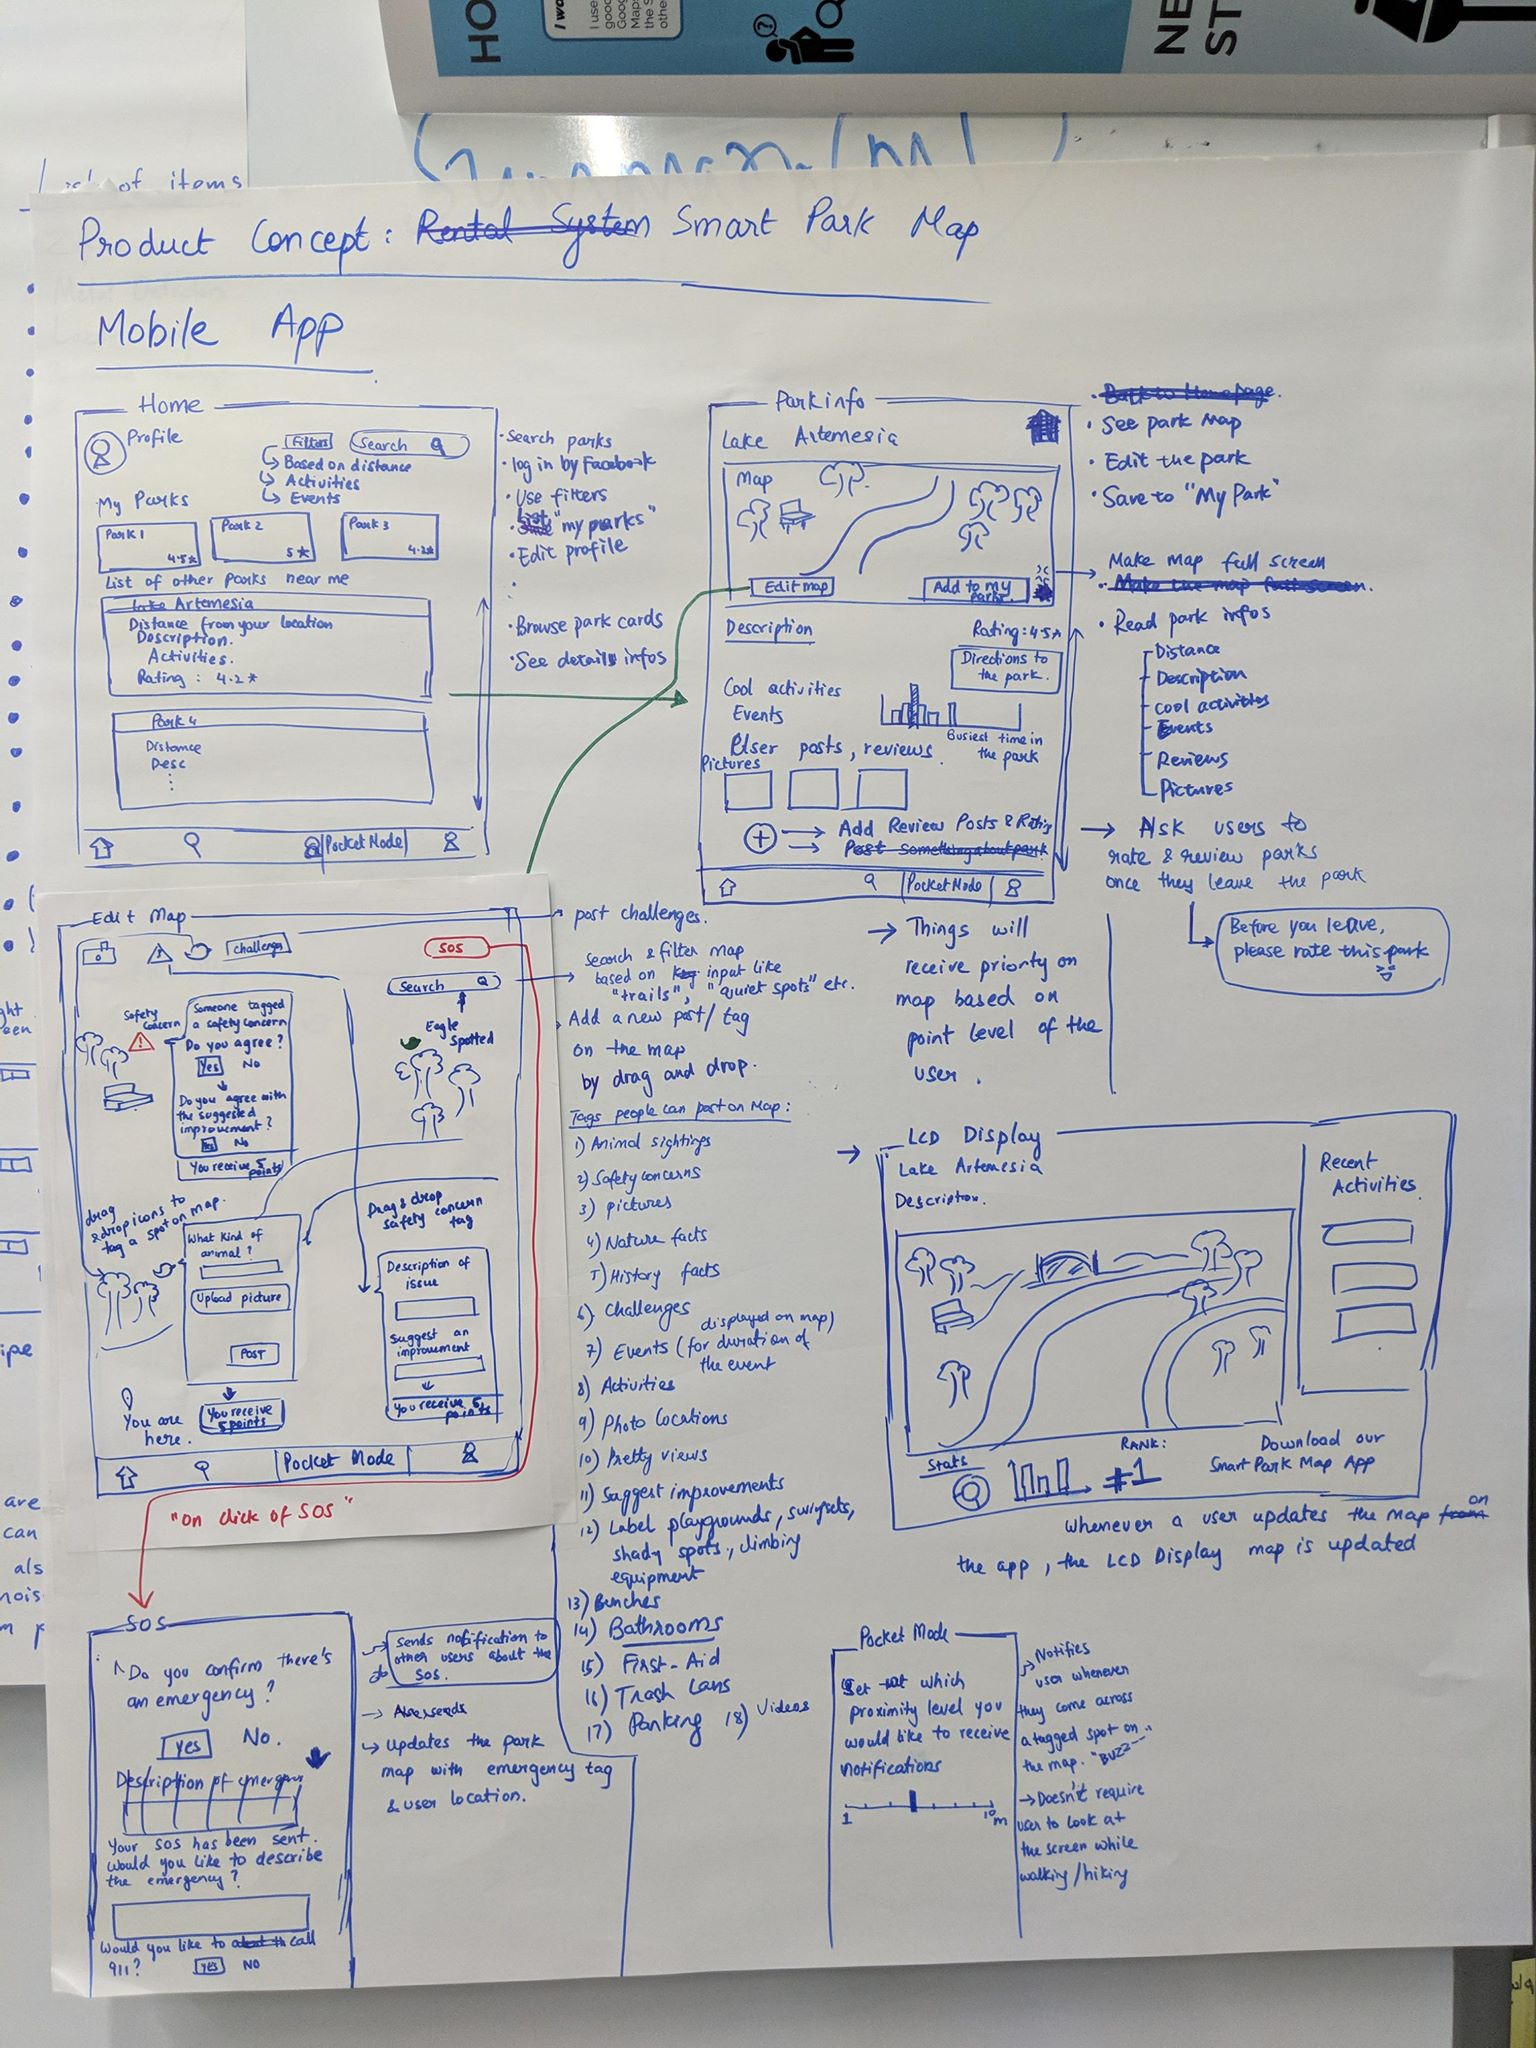 HO
I wo
I use
good
Goo
Maps
the S
othe
NE
ST
of items
Product Concept: Rental System Smart Park Map
Mobile App
Home
Profile
Filters
Search
Based on distance
Activities
Events
My Parks
Park 1
4.5
Park 2
5
Park 3
4.2
List of other parks near me
Lake Artemesia
Distance from your location
Description.
Activities.
Rating : 4.2
Park 4
Distance
Desc
Pocket Mode
• Search parks
• log in by Facebook
• Use filters
• List "my parks"
• Edit profile
• Browse park cards
• See details infos
Park info
Lake Artemesia
Map
Edit map
Add to my
parks
Description
Rating: 4.5
Directions to
the park.
Cool activities
Events
Busiest time in
the park
User posts, reviews.
Pictures
Add Review Posts & Rating
Post something about park
Pocket Mode
• Back to Homepage.
• See park Map
• Edit the park
• Save to "My Park"
Make map full screen
• Make the map full screen.
• Read park infos
Distance
Description
cool activities
Events
Reviews
Pictures
→ Ask users to
rate & review parks
once they leave the park
Before you leave,
please rate this park
→ Things will
receive priority on
map based on
point level of the
user.
Edit Map
challenge
SOS
Search
Safety
Concern
Someone tagged
a safety concern
Do you agree?
Yes No
Do you agree with
the suggested
improvement?
Yes No
You receive 5
points
Eagle
Spotted
drag
& drop icons to
tag a spot on map.
What kind of
animal?
Upload picture
POST
You receive
5 points
Drag & drop
safety concern
tag
Description of
issue
Suggest an
improvement
You receive 5
points
You are
here.
Pocket Mode
"On click of SOS"
post challenges.
search & filter map
based on key input like
"trails", "quiet spots" etc.
Add a new post/tag
on the map
by drag and drop.
Tags people can post on Map:
1) Animal sightings
2) Safety concerns
3) pictures
4) Nature facts
5) History facts
6) Challenges
7) Events (for duration of
displayed on map)
the event
8) Activities
9) Photo locations
10) Pretty views
11) Suggest improvements
12) Label playgrounds, swingsets,
shady spots, climbing
equipment
13) Benches
14) Bathrooms
15) First-Aid
16) Trash Cans
17) Parking 18) Videos
LCD Display
Lake Artemesia
Description.
Recent
Activities
Stats
RANK:
#1
Download our
Smart Park Map App
Whenever a user updates the map from on
the app, the LCD Display map is updated
SOS
Do you confirm there's
an emergency?
Yes No.
Description of emergency
Your SOS has been sent.
Would you like to describe
the emergency?
Would you like to call
911? Yes No
Sends notification to
other users about the
SOS.
→ Also sends
→ Updates the park
map with emergency tag
& user location.
Pocket Mode
Set which
proximity level you
would like to receive
notifications
1 10m
→ Notifies
user whenever
they come across
a tagged spot on
the map. "Buzz--"
→ Doesn't require
user to look at
the screen while
walking/hiking